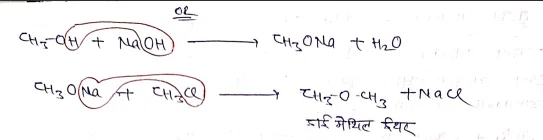 OR
CH₃-OH + NaOH ⟶ CH₃ONa + H₂O
CH₃ONa + CH₃Cl ⟶ CH₃-O-CH₃ + NaCl
डाई मेथिल ईथर